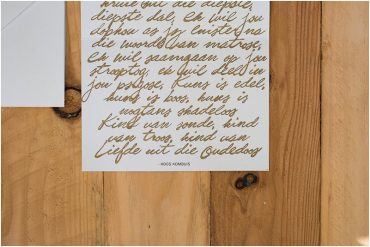 diepste dal, Ek wil jou
ophou as jy
die woorde van matrose,
Ek wil saamgaan op jou
strooptog, en wil deel in
jou psigose, Kuns is edel,
kuns is boos, kuns is
nogtans skadeloos
Kind van sonde, kind
van troos, kind van
Liefde uit die Oudedoos
- KOOS KOMBUIS